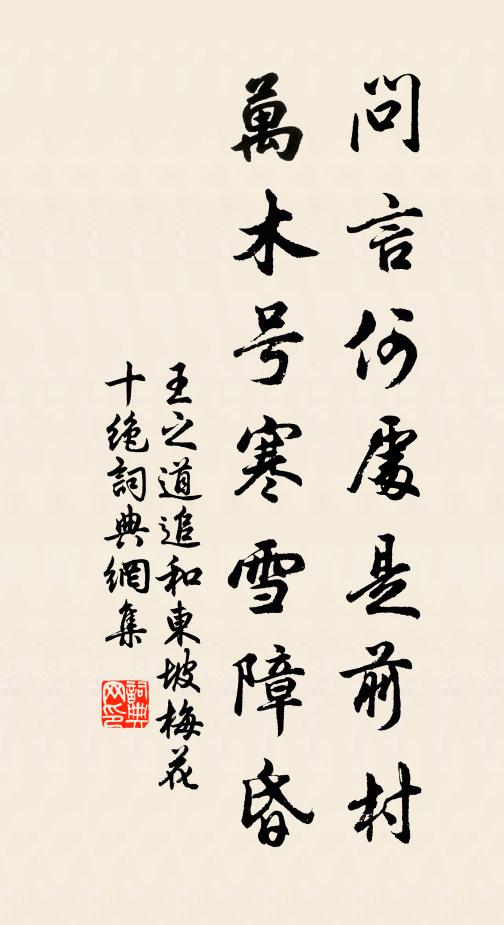 問言何處是前村
萬木号寒雪障昏
王之道追和東坡梅花
十絶詞典網集
詞典
网印